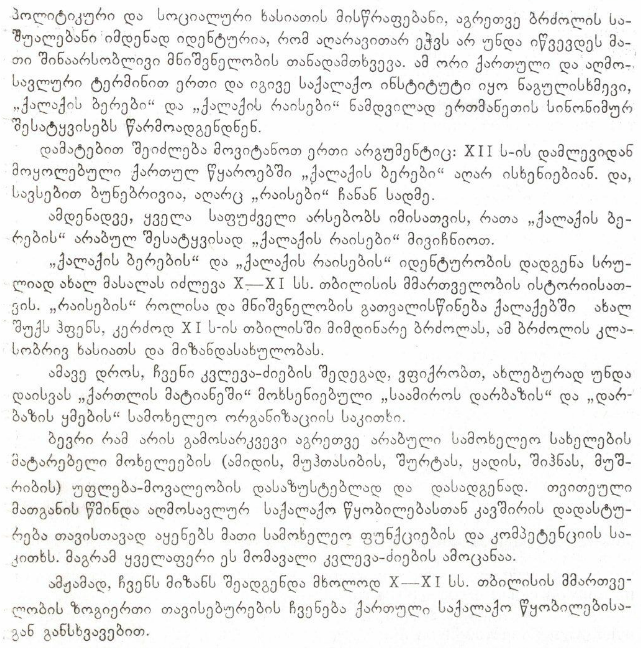 პოლიტიკური და სოციალური ხასიათის მისწრაფებანი, აგრეთვე ბრძოლის სა-
შუალებანი იმდენად იდენტურია, რომ აღარავითარ ეჭვს არ უნდა იწვევდეს მა-
თი შინაარსობლივი მნიშვნელობის თანადამთხვევა. ამ ორი ქართული და აღმო-
სავლური ტერმინით ერთი და იგივე საქალაქო ინსტიტუტი იყო ნაგულისხმევი,
„ქალაქის ბერები“ და „ქალაქის რაისები“ ნამდვილად ერთმანეთის სინონიმურ
შესატყვისებს წარმოადგენდნენ.
დამატებით შეიძლება მოვიტანოთ ერთი არგუმენტიც: XII ს-ის დამლევიდან
მოყოლებული ქართულ წყაროებში „ქალაქის ბერები“ აღარ იხსენიებიან. და,
სავსებით ბუნებრივია, აღარც „რაისები“ ჩანან სადმე.
ამდენადვე, ყველა საფუძველი არსებობს იმისათვის, რათა „ქალაქის ბე-
რების“ არაბულ შესატყვისად „ქალაქის რაისები“ მივიჩნიოთ.
„ქალაქის ბერების“ და „ქალაქის რაისების“ იდენტურობის დადგენა სრუ-
ლიად ახალ მასალას იძლევა X—XI სს. თბილისის მმართველობის ისტორიისათ-
ვის. „რაისების“ როლისა და მნიშვნელობის გათვალისწინება ქალაქებში ახალ
შუქს ჰფენს, კერძოდ XI ს-ის თბილისში მიმდინარე ბრძოლას, ამ ბრძოლის კლა-
სობრივ ხასიათს და მიზანდასახულობას.
ამავე დროს, ჩვენი კვლევა-ძიების შედეგად, ვფიქრობთ, ახლებურად უნდა
დაისვას „ქართლის მატიანეში“ მოხსენიებული „საამიროს დარბაზის“ და „დარ-
ბაზის ყმების“ სამოხელეო ორგანიზაციის საკითხი.
ბევრი რამ არის გამოსარკვევი აგრეთვე არაბული სამოხელეო სახელების
მატარებელი მოხელეების (ამიდის, მუჰთასიბის, შურტას, ყადის, შიჰნას, მუშ-
რიბის) უფლება-მოვალეობის დასაზუსტებლად და დასადგენად. თვითეული
მათგანის წმინდა აღმოსავლურ საქალაქო წყობილებასთან კავშირის დადასტუ-
რება თავისთავად აყენებს მათი სამოხელეო ფუნქციების და კომპეტენციის სა-
კითხს. მაგრამ ყველაფერი ეს მომავალი კვლევა-ძიების ამოცანაა.
ამჟამად, ჩვენს მიზანს შეადგენდა მხოლოდ X—XI სს. თბილისის მმართვე-
ლობის ზოგიერთი თავისებურების ჩვენება ქართული საქალაქო წყობილებისა-
გან განსხვავებით.